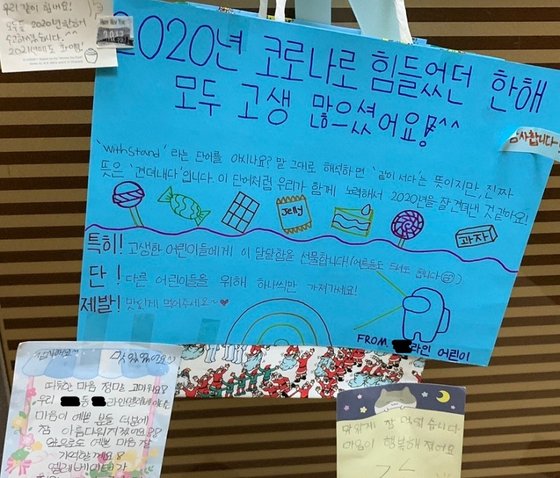 우리 같이 힘내요!
모두들 2020년 한해
수고하셨습니다.^^
2021년에도 화이팅!
2020년 코로나로 힘들었던 한해
모두 고생 많으셨어요!^^
감사합니다
'withstand' 라는 단어를 아시나요? 말 그대로 해석하면 '같이 서다'는 뜻이지만, 진짜
뜻은 '견뎌내다'입니다. 이 단어처럼 우리가 함께 노력해서 2020년을 잘 견뎌낸 것 같아요!
Jelly
과자
특히! 고생한 어린이들에게 이 달달함을 선물합니다!(어른들도 드셔도 됩니다)
단! 다른 어린이들을 위해 하나씩만 가져가세요!
제발! 맛있게 먹어주세요~♥
FROM 라인 어린이
따뜻한 마음 정말 고마워요!
우리 동 라인
마음이 예쁜 분들 덕분에
참 아름다워지겠어요
앞으로도 예쁜 마음 잘
간직할께요
엘리베이터가
맛있게 잘 먹었습니다
마음이 행복해져요